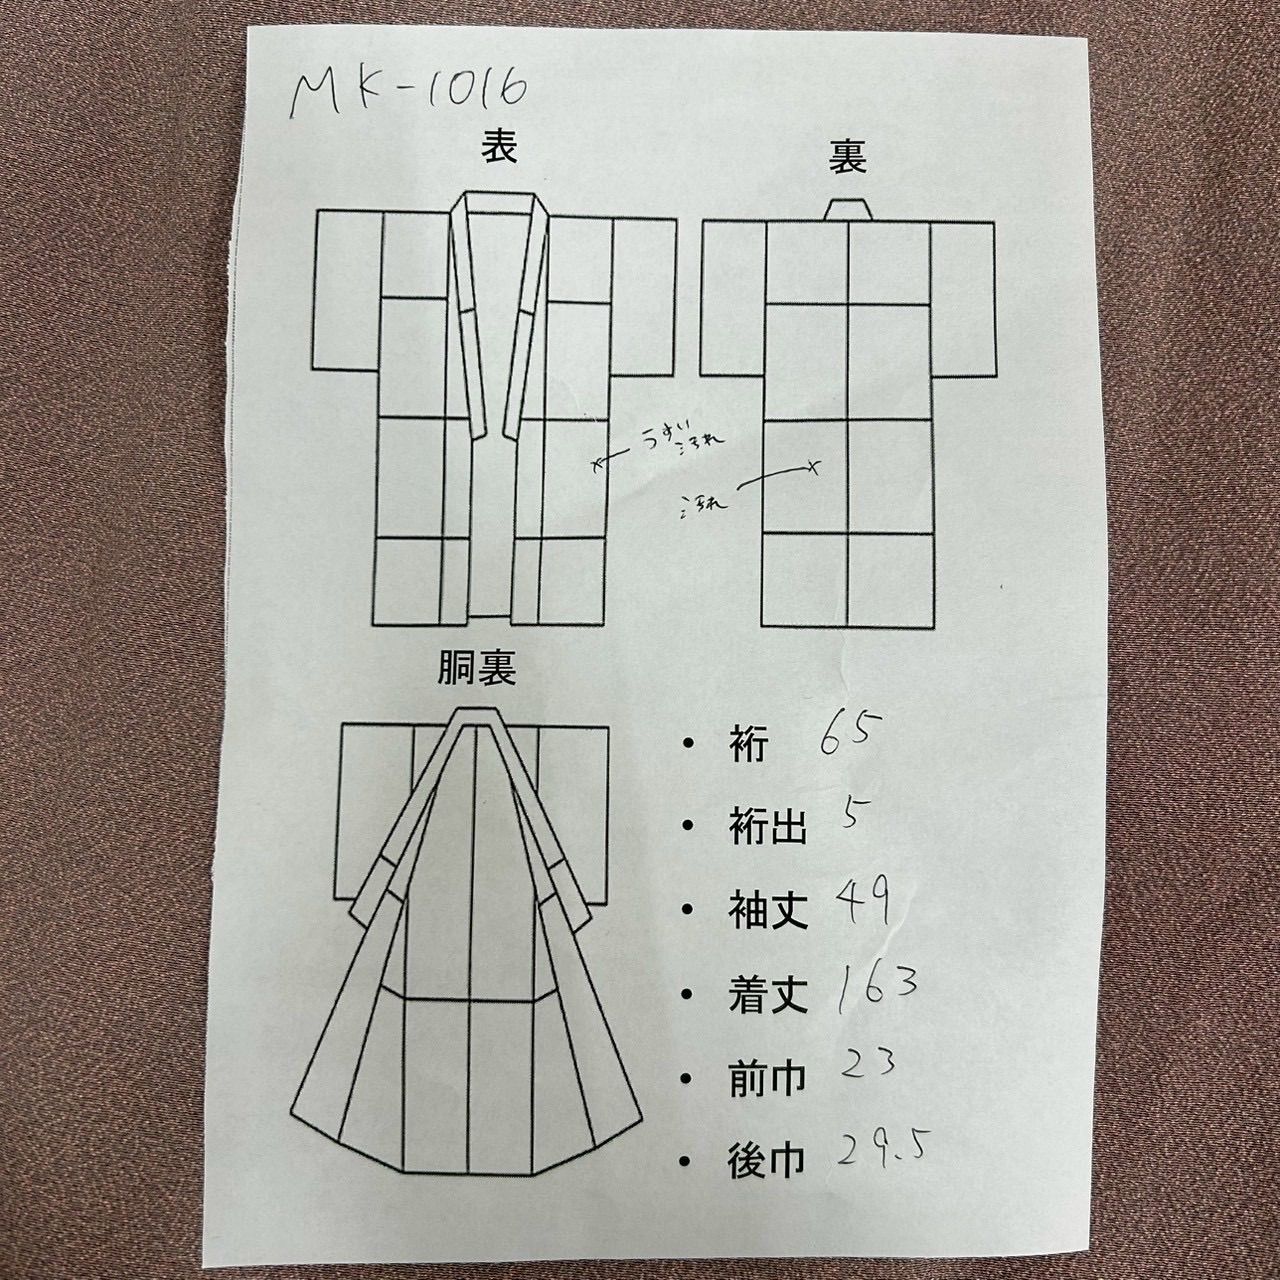 MK-1016
表
裏
うすい
汚れ
汚れ
胴裏
・裄 65
・裄出 5
・袖丈 49
・着丈 163
・前巾 23
・後巾 29.5